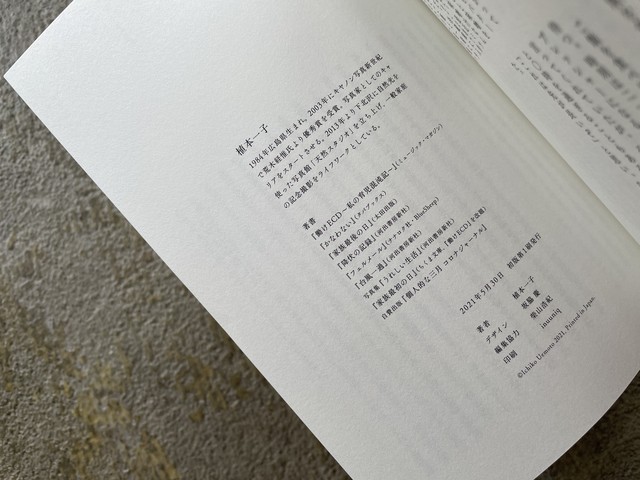 植本一子
1984年広島県生まれ。2003年にキヤノン写真新世紀
で荒木経惟氏より優秀賞を受賞、写真家としてのキャ
リアをスタートさせる。2013年より下北沢に自然光を
使った写真館「天然スタジオ」を立ち上げ、一般家庭
の記念撮影をライフワークとしている。
著書
『働けECD―私の育児混沌記―』(ミュージック・マガジン)
『かなわない』(タバブックス)
『家族最後の日』(太田出版)
『降伏の記録』(河出書房新社)
『フェルメール』(ナナロク社・BlueSheep)
『台風一過』(河出書房新社)
写真集『うれしい生活』(河出書房新社)
『家族最初の日』(ちくま文庫、『働けECD』を改題)
自費出版『個人的な三月 コロナジャーナル』
2021年5月30日 初版第1刷発行
著者 植本一子
デザイン 坂脇慶
編集協力 柴山浩紀
印刷 inuuniq
©Ichiko Uemoto 2021, Printed in Japan.